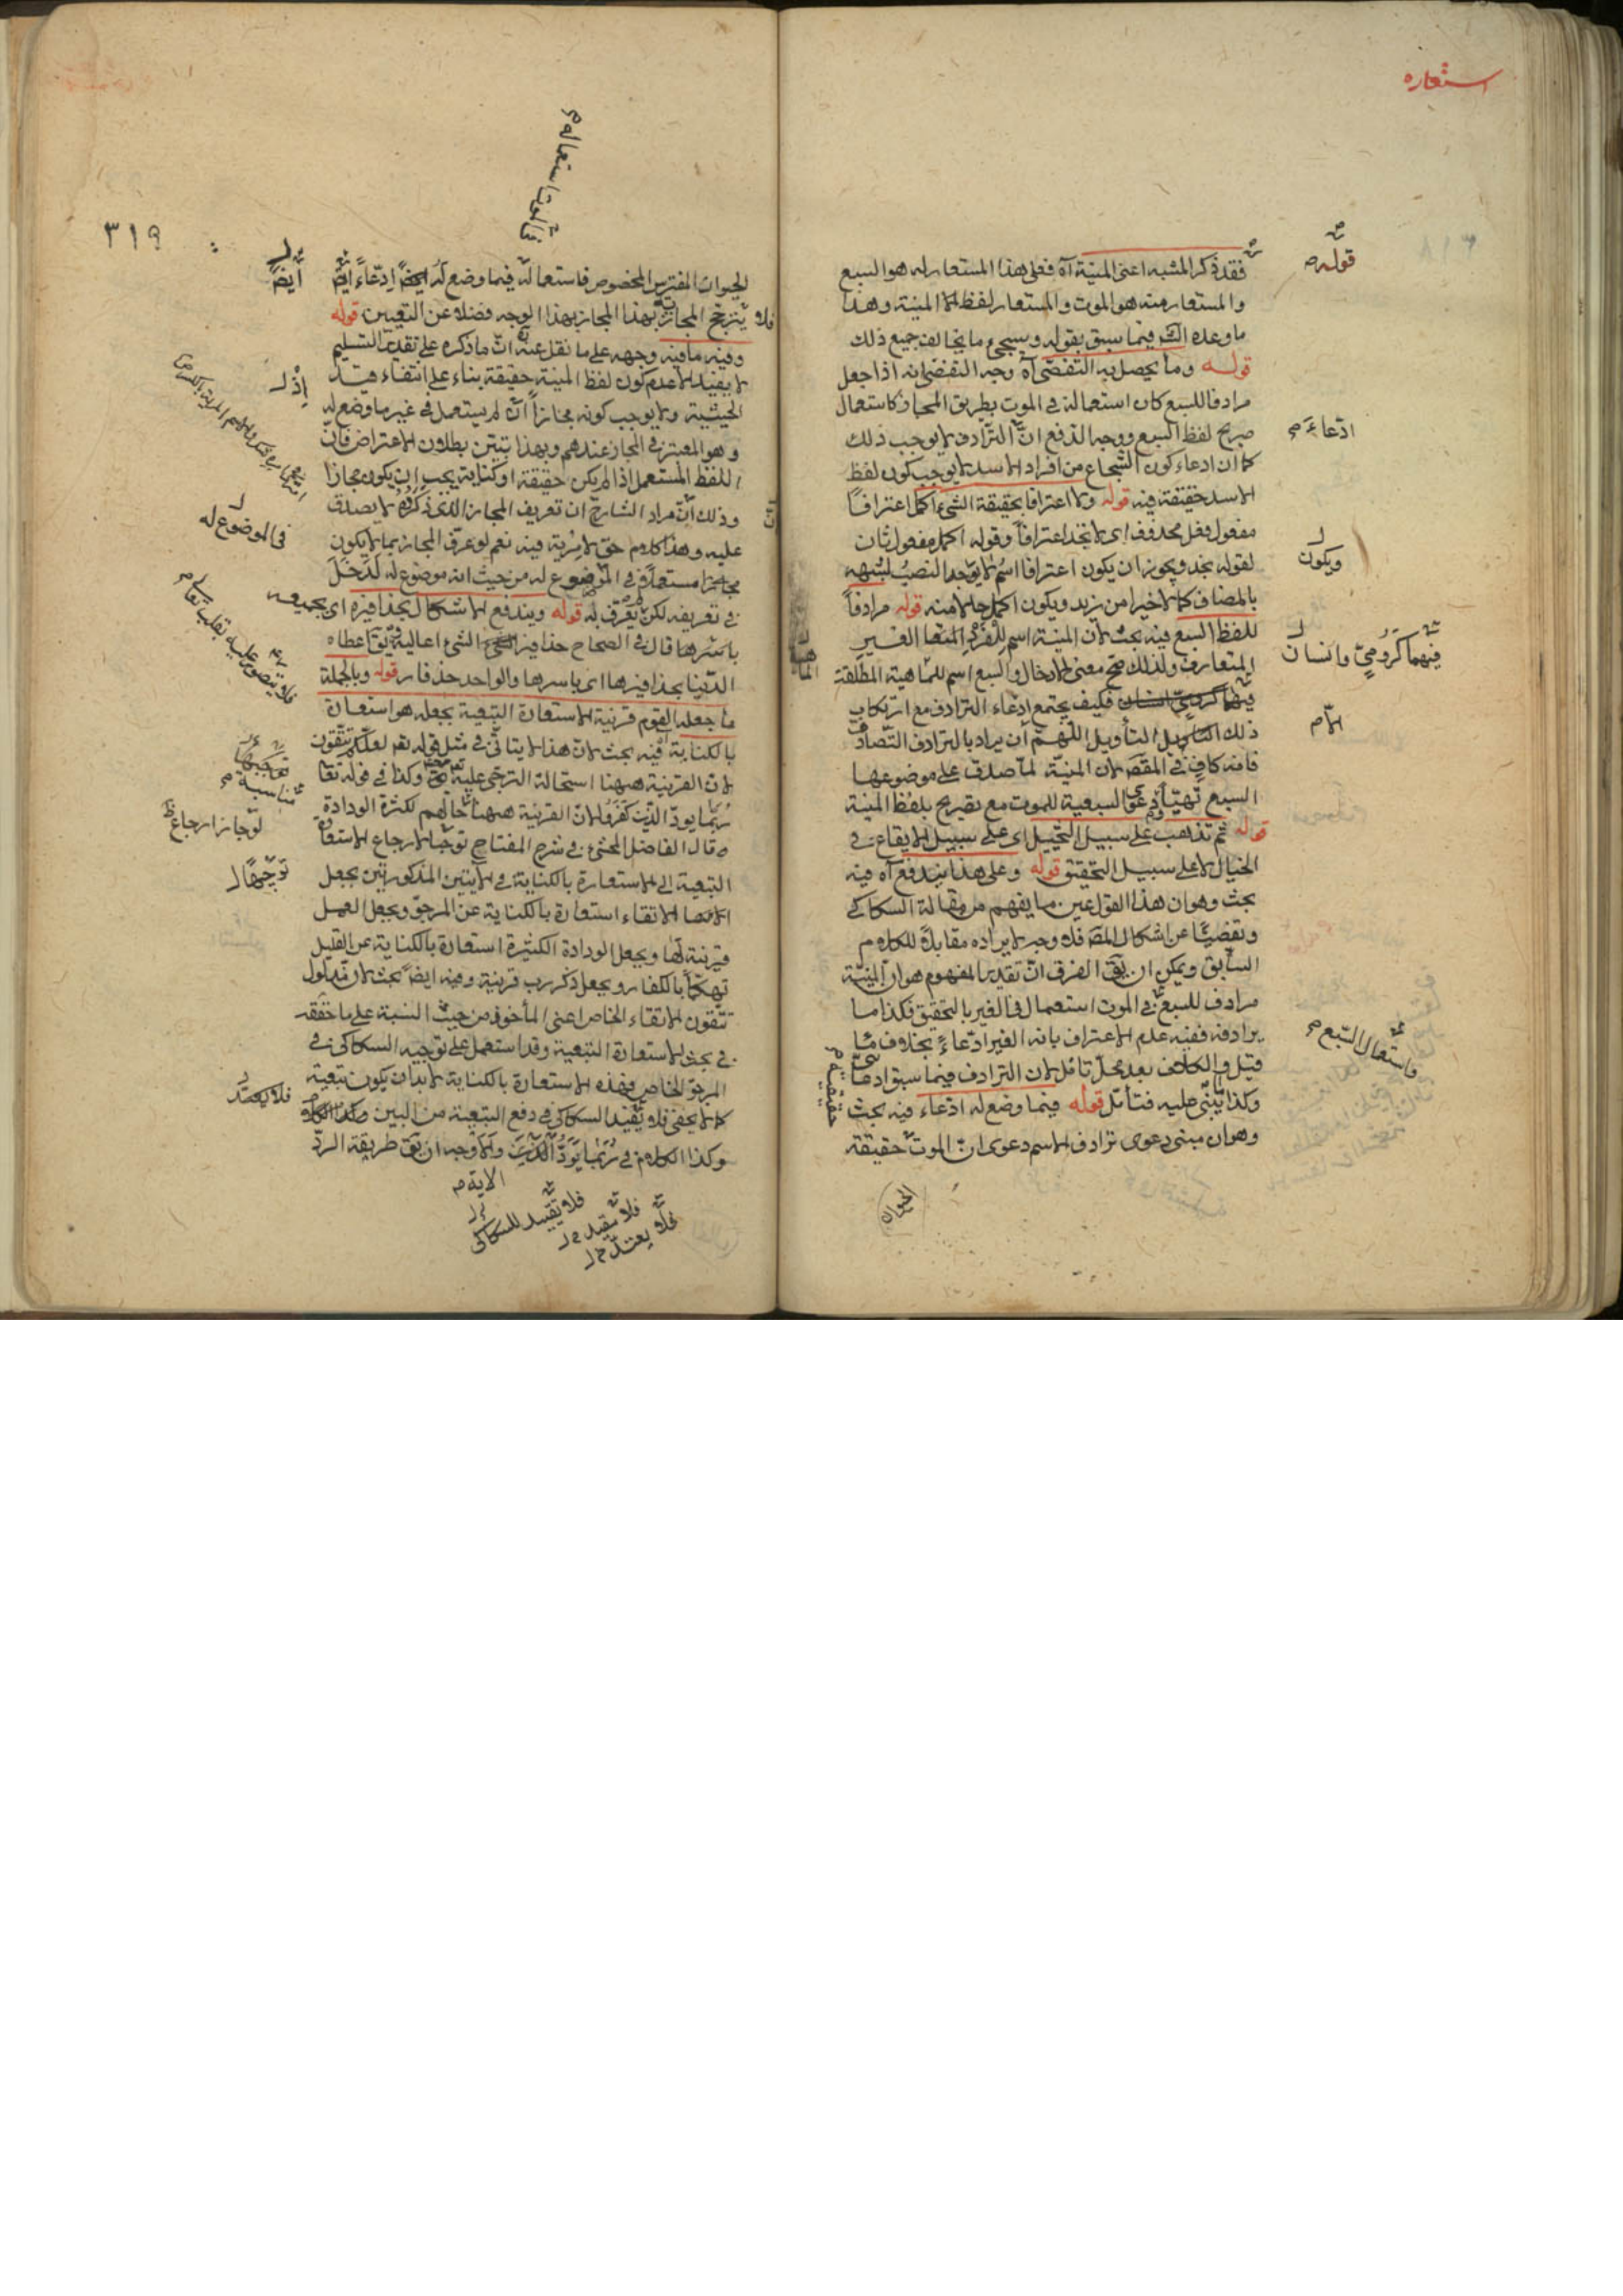 استعاره
قوله
فقد ذكر المشبه اعنى المنية آه فعلى هذا المستعار له هو السبع
والمستعار منه هو الموت والمستعار لفظ المنية وهذا
ما وعده الش فيما سبق بقوله وسيجئ ما يخالف جميع ذلك
قوله وما يحصل به التفصى آه وجه التفصى انه اذا جعل
مرادفا للسبع كان استعماله فى الموت بطريق المجاز كاستعمال
صريح لفظ السبع ووجه الدفع ان الترادف لا يوجب ذلك
ادعاء
كما ان ادعاء كون الشجاع من افراد الاسد لا يوجب كون لفظ
الاسد حقيقة فيه قوله ولا اعترافا بحقيقة الشئ اكمل اعترافا
مفعول فعل محذوف اى لا تجد اعترافا وقوله اكمل مفعول ثان
ويكون
لقوله تجد ويجوز ان يكون اعترافا اسم لا يوجد النصب لشبهه
بالمضاف كما لا خيرا من زيد ويكون اكمل حالا منه قوله مرادفا
للفظ السبع فيه بحث لان المنية اسم للفرد الغير
فيهما كرومى وانسان
المتعارف ولذلك صح معنى الادخال والسبع اسم للماهية المطلقة
فكيف يجتمع ادعاء الترادف مع ارتكاب
ذلك التأويل اللهم أن يراد بالترادف التصادق
الا
فانه كاف فى المقص لان المنية لما صدق على موضوعها
السبع تهيأ دعوى السبعية للموت مع تصريح بلفظ المنية
قوله ثم تذهب على سبيل التخييل اى على سبيل الايقاع فى
الخيال لا على سبيل التحقيق قوله وعلى هذا يندفع آه فيه
بحث وهو ان هذا القول عين ما يفهم من مقالة السكاكى
وتفصيا عن اشكال المص فلا وجه لايراده مقابلة للكلام
السابق ويمكن ان يق الفرق ان تقدير المفهوم هو ان المنية
مرادف للسبع فى الموت استعمال فى الغير بالتحقيق فكذا ما
فاستعمال السبع
يرادفه ففيه عدم الاعتراف بانه الغير ادعاء بخلاف ما
قيل والكلام بعد محل تأمل لان الترادف فيما سبق ادعائى
حقيقية
وكذا يبنى عليه فتأمل قوله فيما وضع له ادعاء فيه بحث
وهو ان مبنى دعوى ترادف الاسم دعوى ان الموت حقيقة
الحيوان
٣١٩
الحيوان المفترس المخصوص فاستعماله فيما وضع له ادعاء ايض
ايضا
فلا يترجح المجازية بهذا المجاز بهذا الوجه فضلا عن التعيين قوله
وفيه ما فيه وجهه على ما نقل عنه ان ما ذكره على تقدير التسليم
لا يفيد الا عدم كون لفظ المنية حقيقة بناء على انتفاء قيد
اذ
الحيثية ولا يوجب كونه مجازا لم يستعمل فى غير ما وضع له
وهو المعتبر فى المجاز عندهم وبهذا يتبين بطلان الاعتراض فان
اللفظ المستعمل اذا لم يكن حقيقة او كناية يجب ان يكون مجازا
وذلك ان مراد الشارح ان تعريف المجاز الذى ذكروه لا يصدق
فى الموضوع له
عليه وهذا كلام حق لا مرية فيه نعم لو عرف المجاز بما لا يكون
مستعملا فى الموضوع له من حيث انه موضوع له لدخل
فى تعريفه لكن لم يعرف به قوله ويندفع الاشكال بحذافيره اى بجميعه
باسرها قال فى الصحاح حذافير الشئ اعاليه يق اعطاه
الدنيا بحذافيرها اى باسرها والواحد حذفار قوله وبالجملة
ما جعله القوم قرينة الاستعارة التبعية يجعله هو استعارة
بالكناية فيه بحث لان هذا لا يتأتى فى مثل قوله تعالى لعلكم تتقون
لان القرينة ههنا استحالة الترجى عليه تعالى وكذا فى قوله تعا
ربما يود الذين كفروا لان القرينة ههنا حالهم لكثرة الودادة
لو جاز ارجاع
وقال الفاضل المحشى فى شرح المفتاح توجيها لارجاع الاستعارة
توجيها
التبعية الى الاستعارة بالكناية فى الآيتين المذكورتين بجعل
الاتقاء استعارة بالكناية عن المرجو ويجعل لعل
قرينة لها ويجعل الودادة الكثيرة استعارة بالكناية عن القليل
تهكما بالكفار ويجعل ذكر رب قرينة وفيه ايضا بحث لان مدلول
تتقون الاتقاء الخاص اعنى المأخوذ من حيث النسبة على ما حققه
فى بحث الاستعارة التبعية وقد استعمل على توجيه السكاكى فى
المرجو الخاص فهذه الاستعارة بالكناية لا بد ان يكون تبعية
فلا يعتد
كما لا يخفى فلا يفيد السكاكى فى دفع التبعية من البين
وكذا الكلام فى ربما يود الذين والاوجه ان يق طريقة الرد
الاية
فلا تقييد للسكاكى
فلا يفيد
فلا يعتد